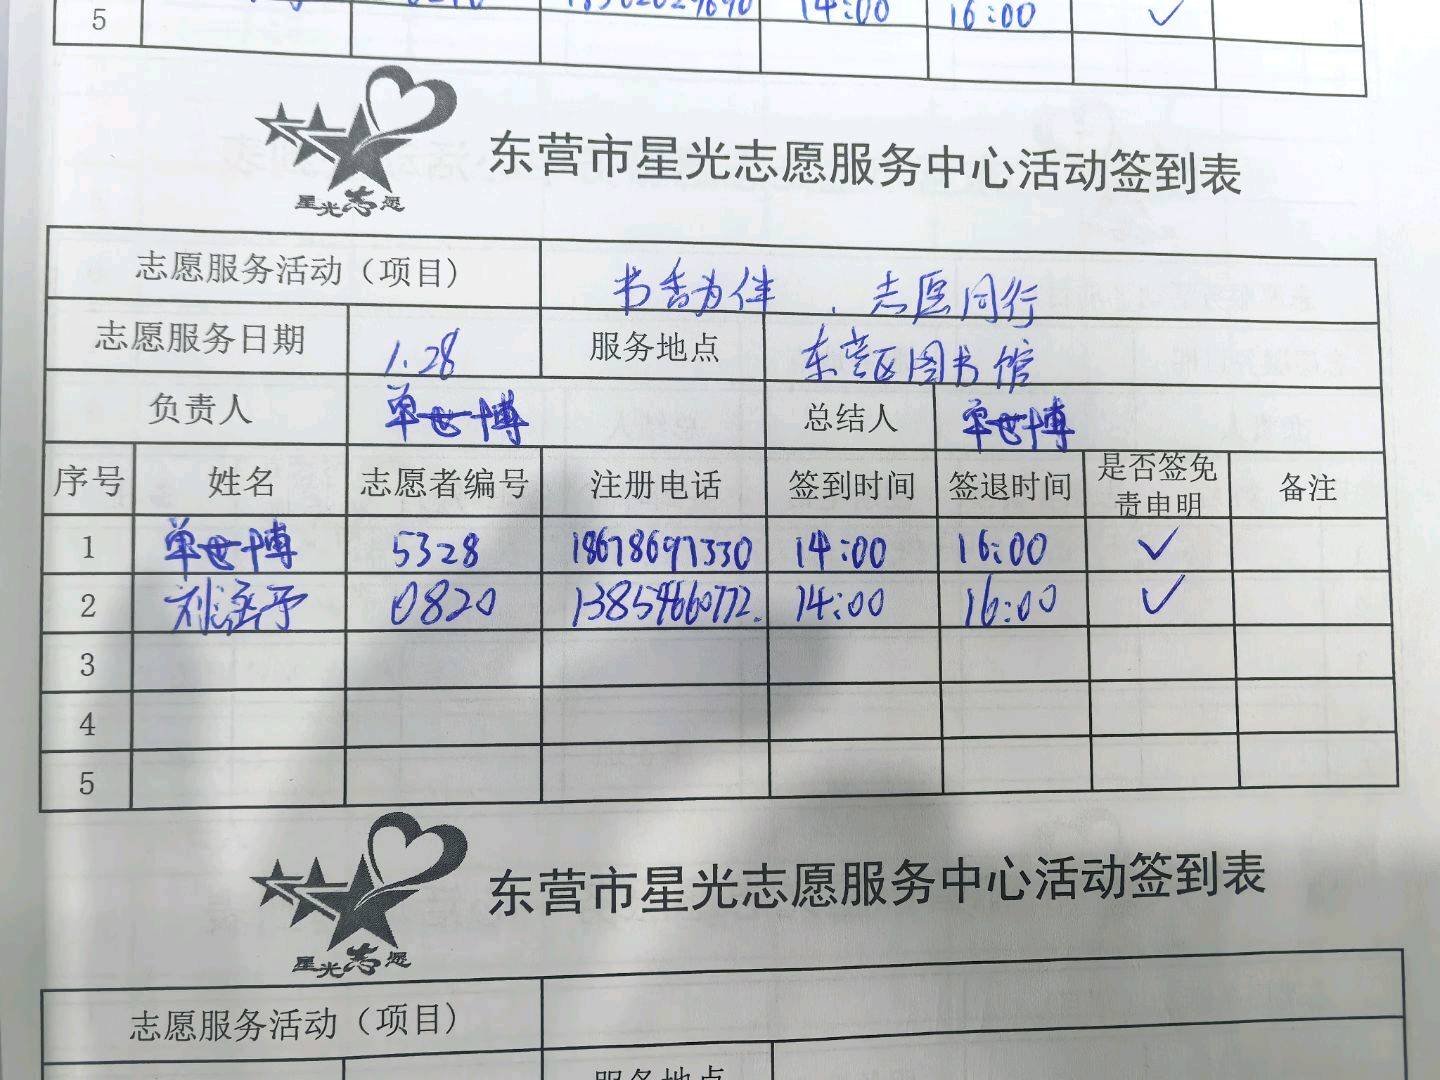 5 14:00 16:00 ✓
星光志愿
东营市星光志愿服务中心活动签到表
志愿服务活动（项目） 书香为伴、志愿同行
志愿服务日期 1.28 服务地点 东营区图书馆
负责人 单世博 总结人 单世博
序号 姓名 志愿者编号 注册电话 签到时间 签退时间 是否签免责申明 备注
1 单世博 5328 18678697330 14:00 16:00 ✓
2 0820 13854660772. 14:00 16:00 ✓
3
4
5
星光志愿
东营市星光志愿服务中心活动签到表
志愿服务活动（项目）
服务地点